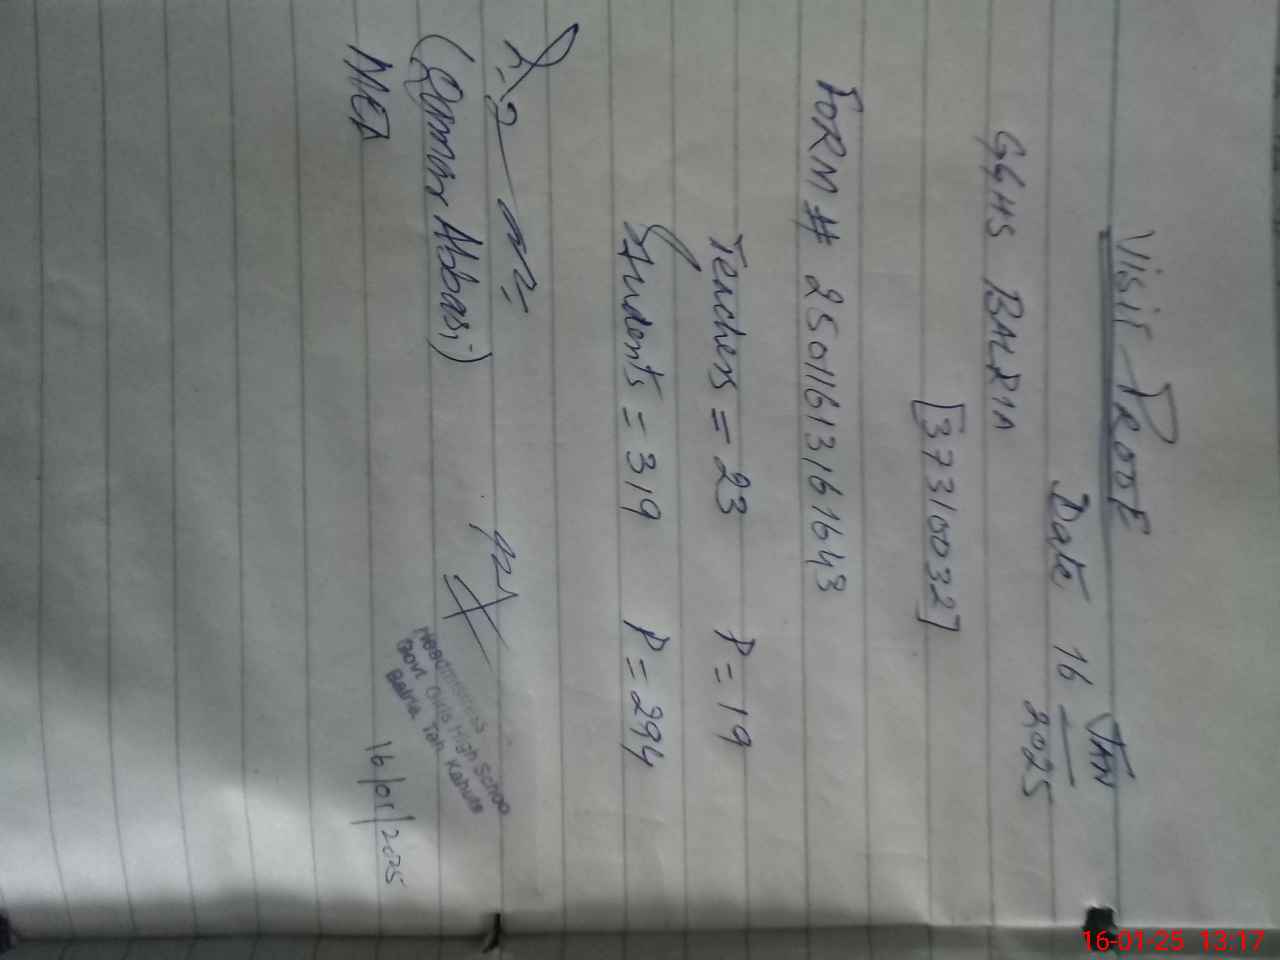 Visit PROOF
Date 16 JAN
2025
GGHS BALRIA
[37310032]
FORM # 250116131616143
Teachers = 23 P = 19
Students = 319 P = 294
(Qamar Abbasi)
MEA
Headmistress
Govt Girls High School
Balria Teh Kahuta
16/01/2025
16-01-25 13:17